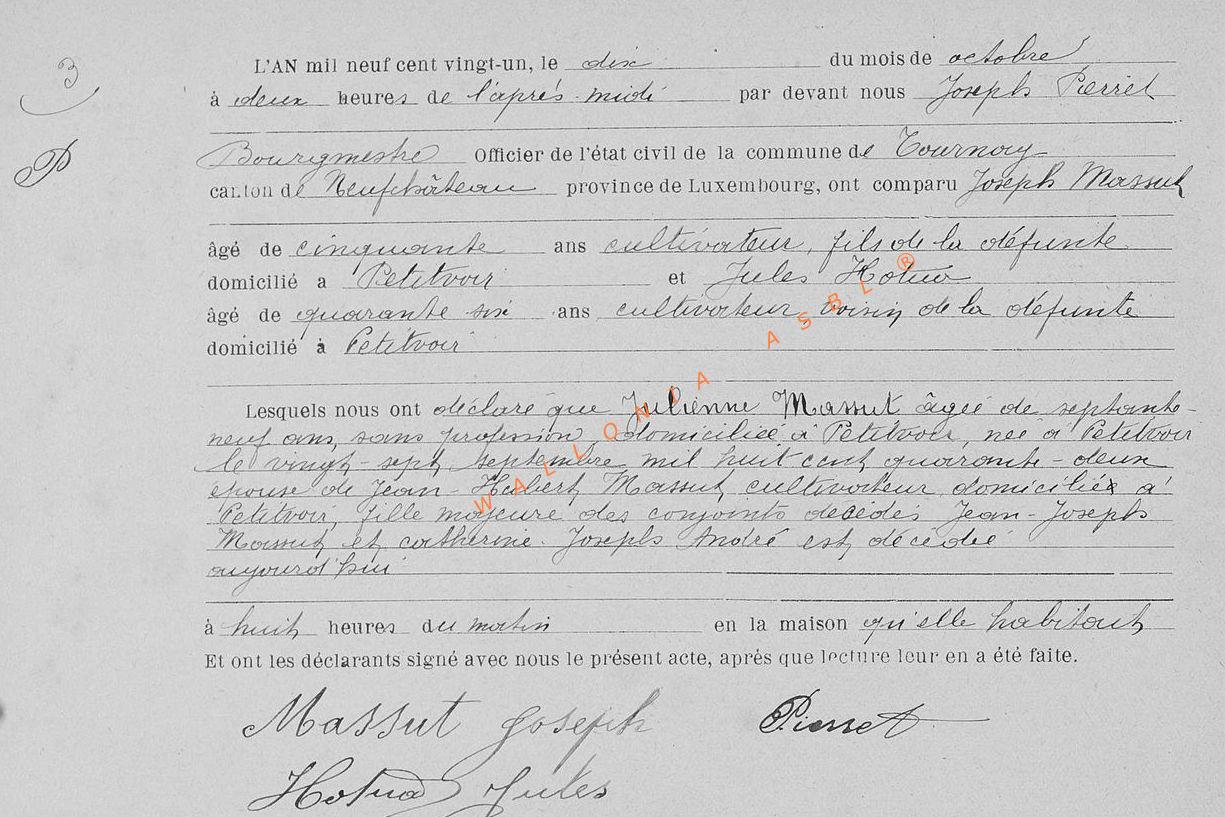 3
P
L'AN mil neuf cent vingt-un, le dix du mois de octobre
à deux heures de l'après-midi par devant nous Joseph Pierret
Bourgmestre Officier de l'état civil de la commune de Tournay
canton de Neufchâteau province de Luxembourg, ont comparu Joseph Massut
âgé de cinquante ans cultivateur, fils de la défunte
domicilié à Petitvoir et Jules
âgé de quarante six ans cultivateur voisin de la défunte
domicilié à Petitvoir
Lesquels nous ont déclaré que Julienne Massut âgée de septante-
neuf ans, sans profession, domiciliée à Petitvoir, née à Petitvoir
le vingt-sept septembre mil huit cent quarante-deux
épouse de Jean-Hubert Massut, cultivateur domicilié à
Petitvoir, fille majeure des conjoints décédés Jean-Joseph
Massut et catherine-Joseph André est décédée
aujourd'hui
à huit heures du matin en la maison qu'elle habitait
Et ont les déclarants signé avec nous le présent acte, après que lecture leur en a été faite.
Massut Joseph Pierret
Jules
WALLONIA ASBL ®